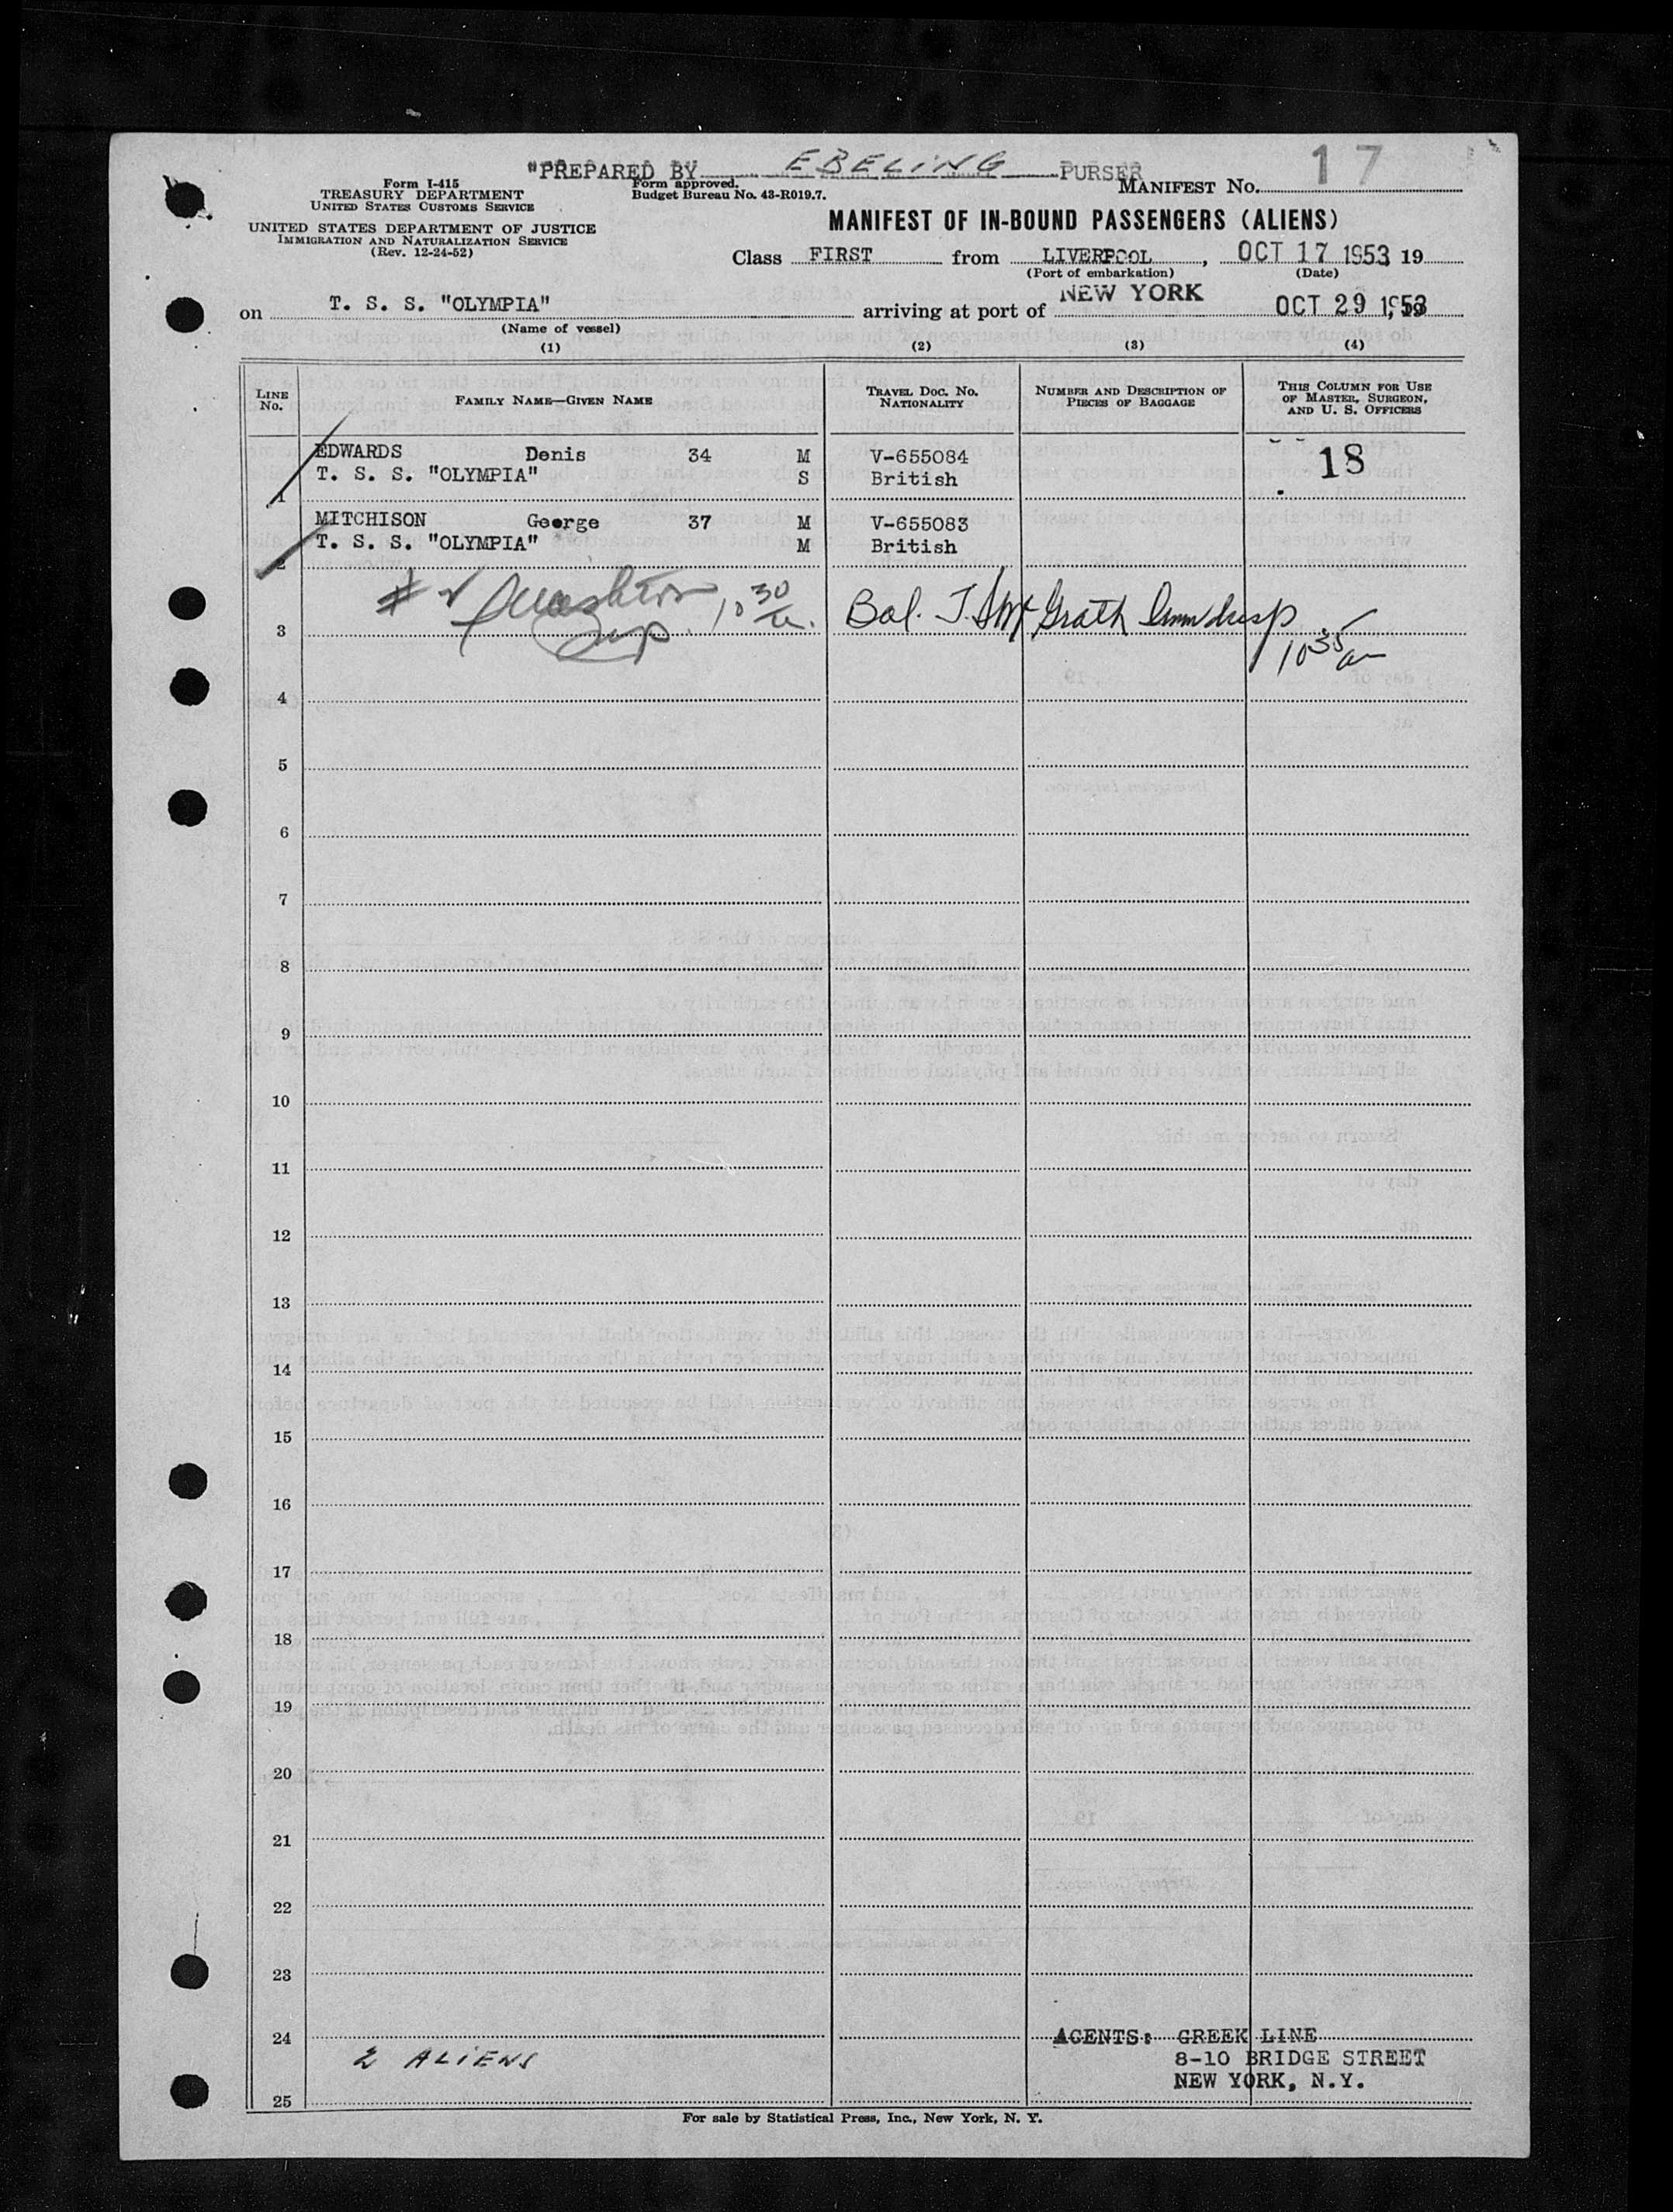 "PREPARED BY EBELING PURSER
Form I-415
TREASURY DEPARTMENT
UNITED STATES CUSTOMS SERVICE
Form approved.
Budget Bureau No. 43-R019.7.
MANIFEST No. 17
UNITED STATES DEPARTMENT OF JUSTICE
IMMIGRATION AND NATURALIZATION SERVICE
(Rev. 12-24-52)
MANIFEST OF IN-BOUND PASSENGERS (ALIENS)
Class FIRST from LIVERPOOL, OCT 17 1953 19
(Port of embarkation) (Date)
on T. S. S. "OLYMPIA" arriving at port of NEW YORK OCT 29 1953
(Name of vessel)
(1) (2) (3) (4)
LINE No. FAMILY NAME—GIVEN NAME TRAVEL DOC. NO. NATIONALITY NUMBER AND DESCRIPTION OF PIECES OF BAGGAGE THIS COLUMN FOR USE OF MASTER, SURGEON, AND U. S. OFFICERS
EDWARDS Denis 34 M V-655084 18
T. S. S. "OLYMPIA" S British
1
MITCHISON George 37 M V-655083
T. S. S. "OLYMPIA" M British
2
10 30 Bal. T. McGrath
3
10 35 am
4
5
6
7
8
9
10
11
12
13
14
15
16
17
18
19
20
21
22
23
24 AGENTS: GREEK LINE
2 ALIENS 8-10 BRIDGE STREET
NEW YORK, N.Y.
25
For sale by Statistical Press, Inc., New York, N. Y.